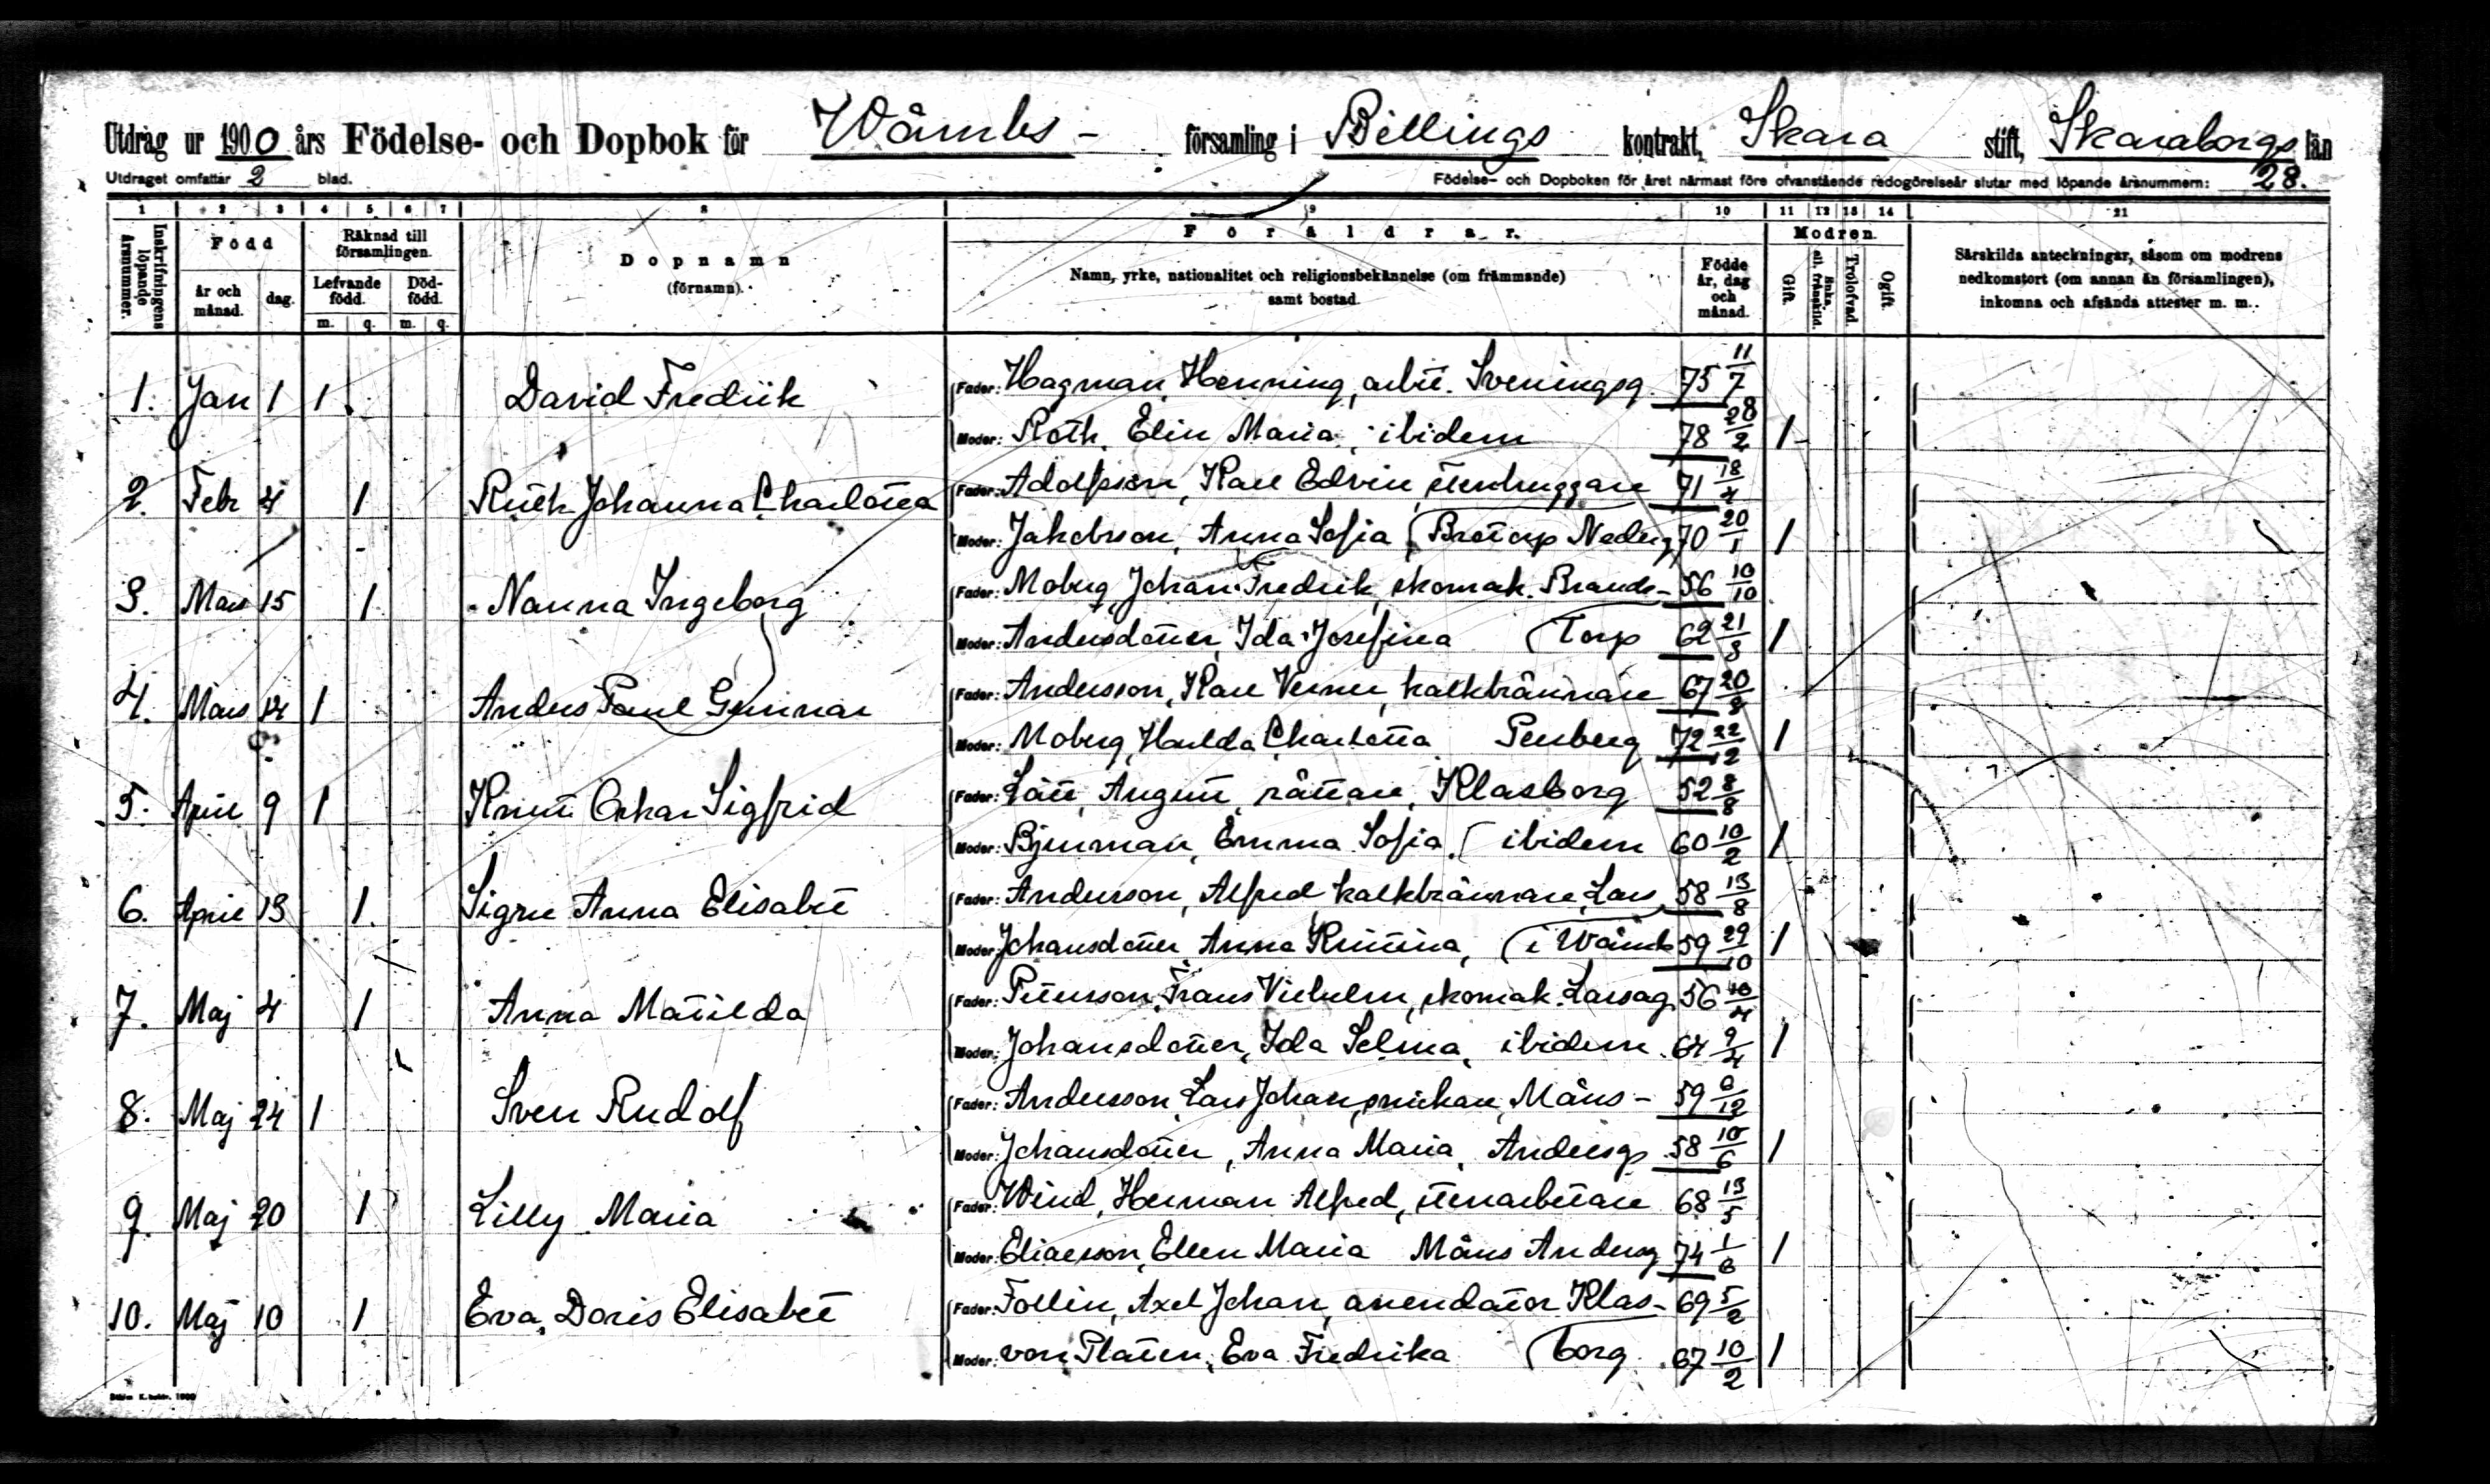 Utdrag ur 1900 års Födelse- och Dopbok för Wåmbs - församling i Billings kontrakt, Skara stift, Skaraborgs län
Utdraget omfattar 2 blad. Födelse- och Dopboken för året närmast före ofvanstående redogörelseår slutar med löpande årsnummern: 28.
1 2 3 4 5 6 7 8 9 10 11 12 13 14 21
Inskrifningens löpande årsnummer.
Född
år och månad.
dag.
Räknad till församlingen.
Lefvande född.
Död-född.
m. q. m. q.
Dopnamn
(förnamn).
Föräldrar.
Namn, yrke, nationalitet och religionsbekännelse (om främmande)
samt bostad.
Födde år, dag och månad.
Modren
Gift.
Enka ell. frånskild.
Trolofvad.
Ogift.
Särskilda anteckningar, såsom om modrens
nedkomstort (om annan än församlingen),
inkomna och afsända attester m. m.
1. Jan 1 1 David Fredrik Fader: Hagman, Henning, arbet. Sveningsg. 75 11/7
Moder: Roth, Elin Maria, ibidem 78 28/2 1
2. Febr 4 1 Ruth Johanna Charlotta Fader: Adolfsson, Karl Edvin, stenhuggare 71 18/4
Moder: Jakobsson, Anna Sofia (Bretorp Nederg 70 20/1 1
3. Mars 15 1 Nanna Ingeborg Fader: Moberg, Johan Fredrik, skomak. Brands- 56 10/10
Moder: Andersdotter, Ida Josefina (Torp 62 21/8 1
4. Mars 14 1 Anders Paul Gunnar Fader: Andersson, Karl Verner, kalkbrännare 67 20/8
Moder: Moberg, Hulda Charlotta Persberg 72 22/12 1
5. April 9 1 Knut Oskar Sigfrid Fader: Lätt, August, rättare, Klasborg 52 8/8
Moder: Bjurman, Emma Sofia (ibidem 60 10/2 1
6. April 13 1 Signe Anna Elisabet Fader: Andersson, Alfred kalkbrännare, Lars 58 13/8
Moder: Johansdotter, Anna Kristina, (i Wåmb 59 29/10 1
7. Maj 4 1 Anna Matilda Fader: Pettersson, Frans Vilhelm, skomak. Larsag. 56 10/4
Moder: Johansdotter, Ida Selma, ibidem 64 9/4 1
8. Maj 24 1 Sven Rudolf Fader: Andersson, Lars Johan, snickare, Måns- 59 6/12
Moder: Johansdotter, Anna Maria, Andersg. 58 10/6 1
9. Maj 20 1 Lilly Maria Fader: Wind, Herman Alfred, stenarbetare 68 13/5
Moder: Eliaeson, Ellen Maria Måns Andersg 74 1/6 1
10. Maj 10 1 Eva Doris Elisabet Fader: Follin, Axel Johan, arrendator Klas- 69 5/2
Moder: von Platen, Eva Fredrika (borg. 67 10/2 1